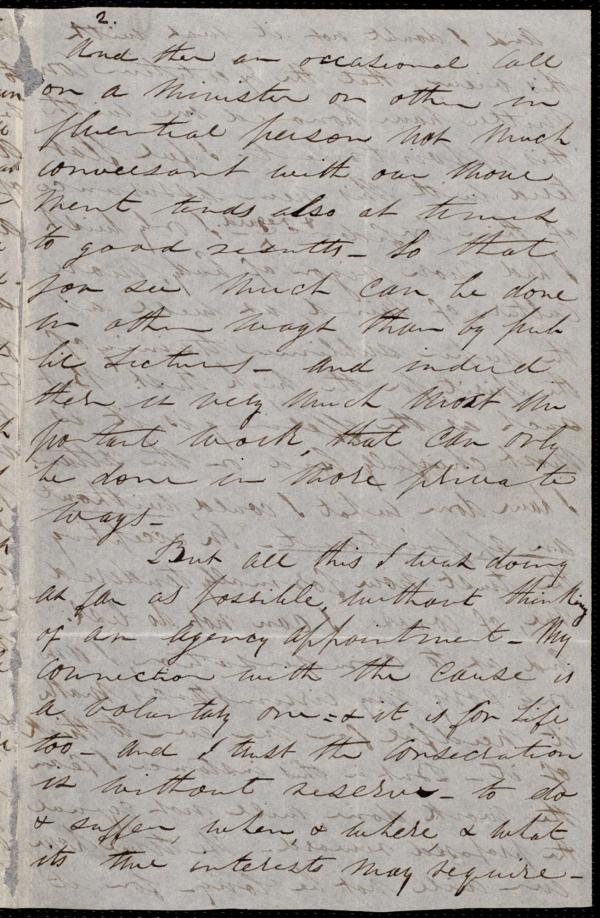 2.
And then an occasional call
on a minister or other in
fluential person not much
conversant with our move
ment tends also at times
to good results - So that
you see much can be done
in other ways than by pub
lic Lectures - and indeed
there is very much most im
portant work, that can only
be done in more private
ways -
But all this I was doing
as far as possible, without thinking
of an agency appointment - My
connection with the cause is
a voluntary one - & it is for Life
too - and I trust the consecration
is without reserve - to do
& suffer, when & where & what
its true interests may require -